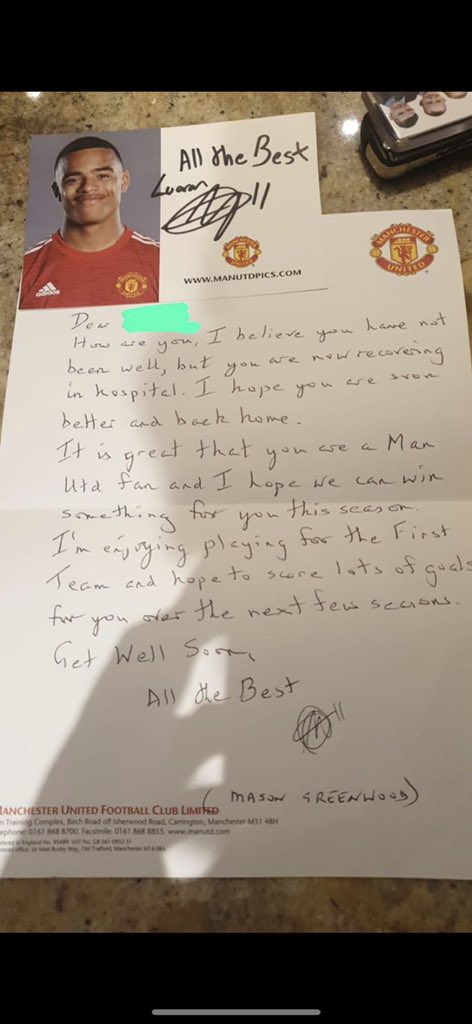 All the Best
11
WWW.MANUTDPICS.COM
MANCHESTER
UNITED
adidas
Dear
How are you, I believe you have not
been well, but you are now recovering
in hospital. I hope you are soon
better and back home.
It is great that you are a Man
Utd fan and I hope we can win
something for you this season.
I'm enjoying playing for the First
Team and hope to score lots of goals
for you over the next few seasons.
Get Well Soon,
All the Best
11
(MASON GREENWOOD)
MANCHESTER UNITED FOOTBALL CLUB LIMITED
Training Complex, Birch Road off Isherwood Road, Carrington, Manchester M31 4BH
ephone: 0161 868 8700. Facsimile: 0161 868 8855. www.manutd.com
England No. 95489 VAT No. GB 561 0952 51
office: Sir Matt Busby Way, Old Trafford, Manchester M16 0RA